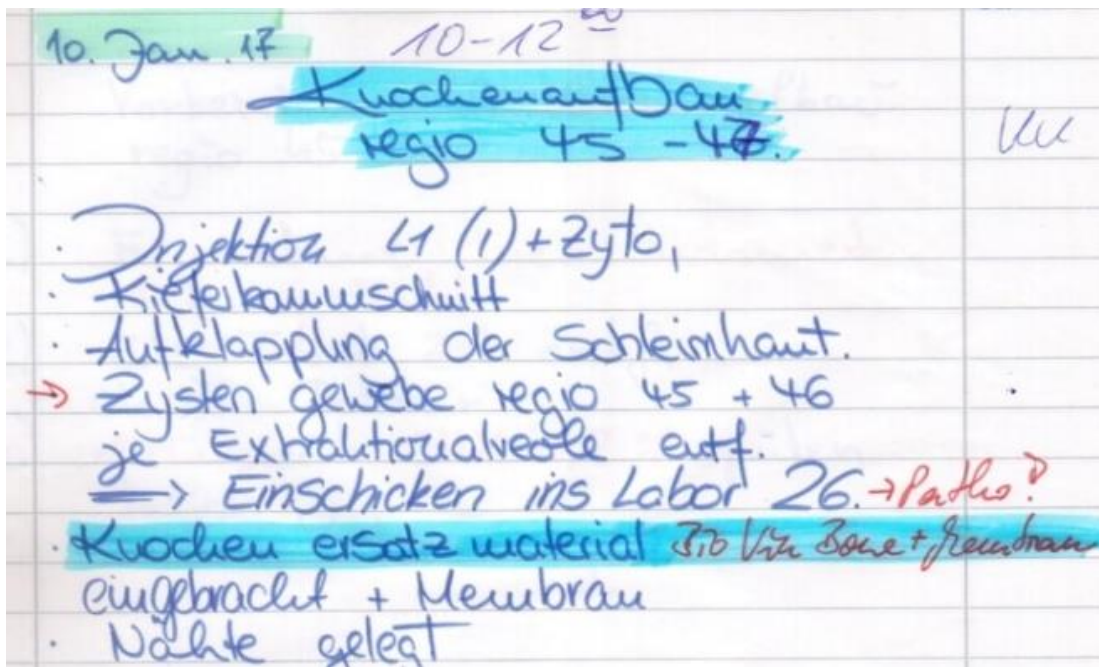 10. Jan. 17 10-12 00
Knochenaufbau
regio 45 - 47.
· Injektion L1 (1) + Zyto,
· Kieferkammschnitt
· Aufklappung der Schleimhaut.
→ Zysten gewebe regio 45 + 46
je Extraktionalveole entf.
⟹ Einschicken ins Labor 26. → Patho?
· Knochen ersatz material Bio Bone + Membran
eingebracht + Membran
· Nähte gelegt